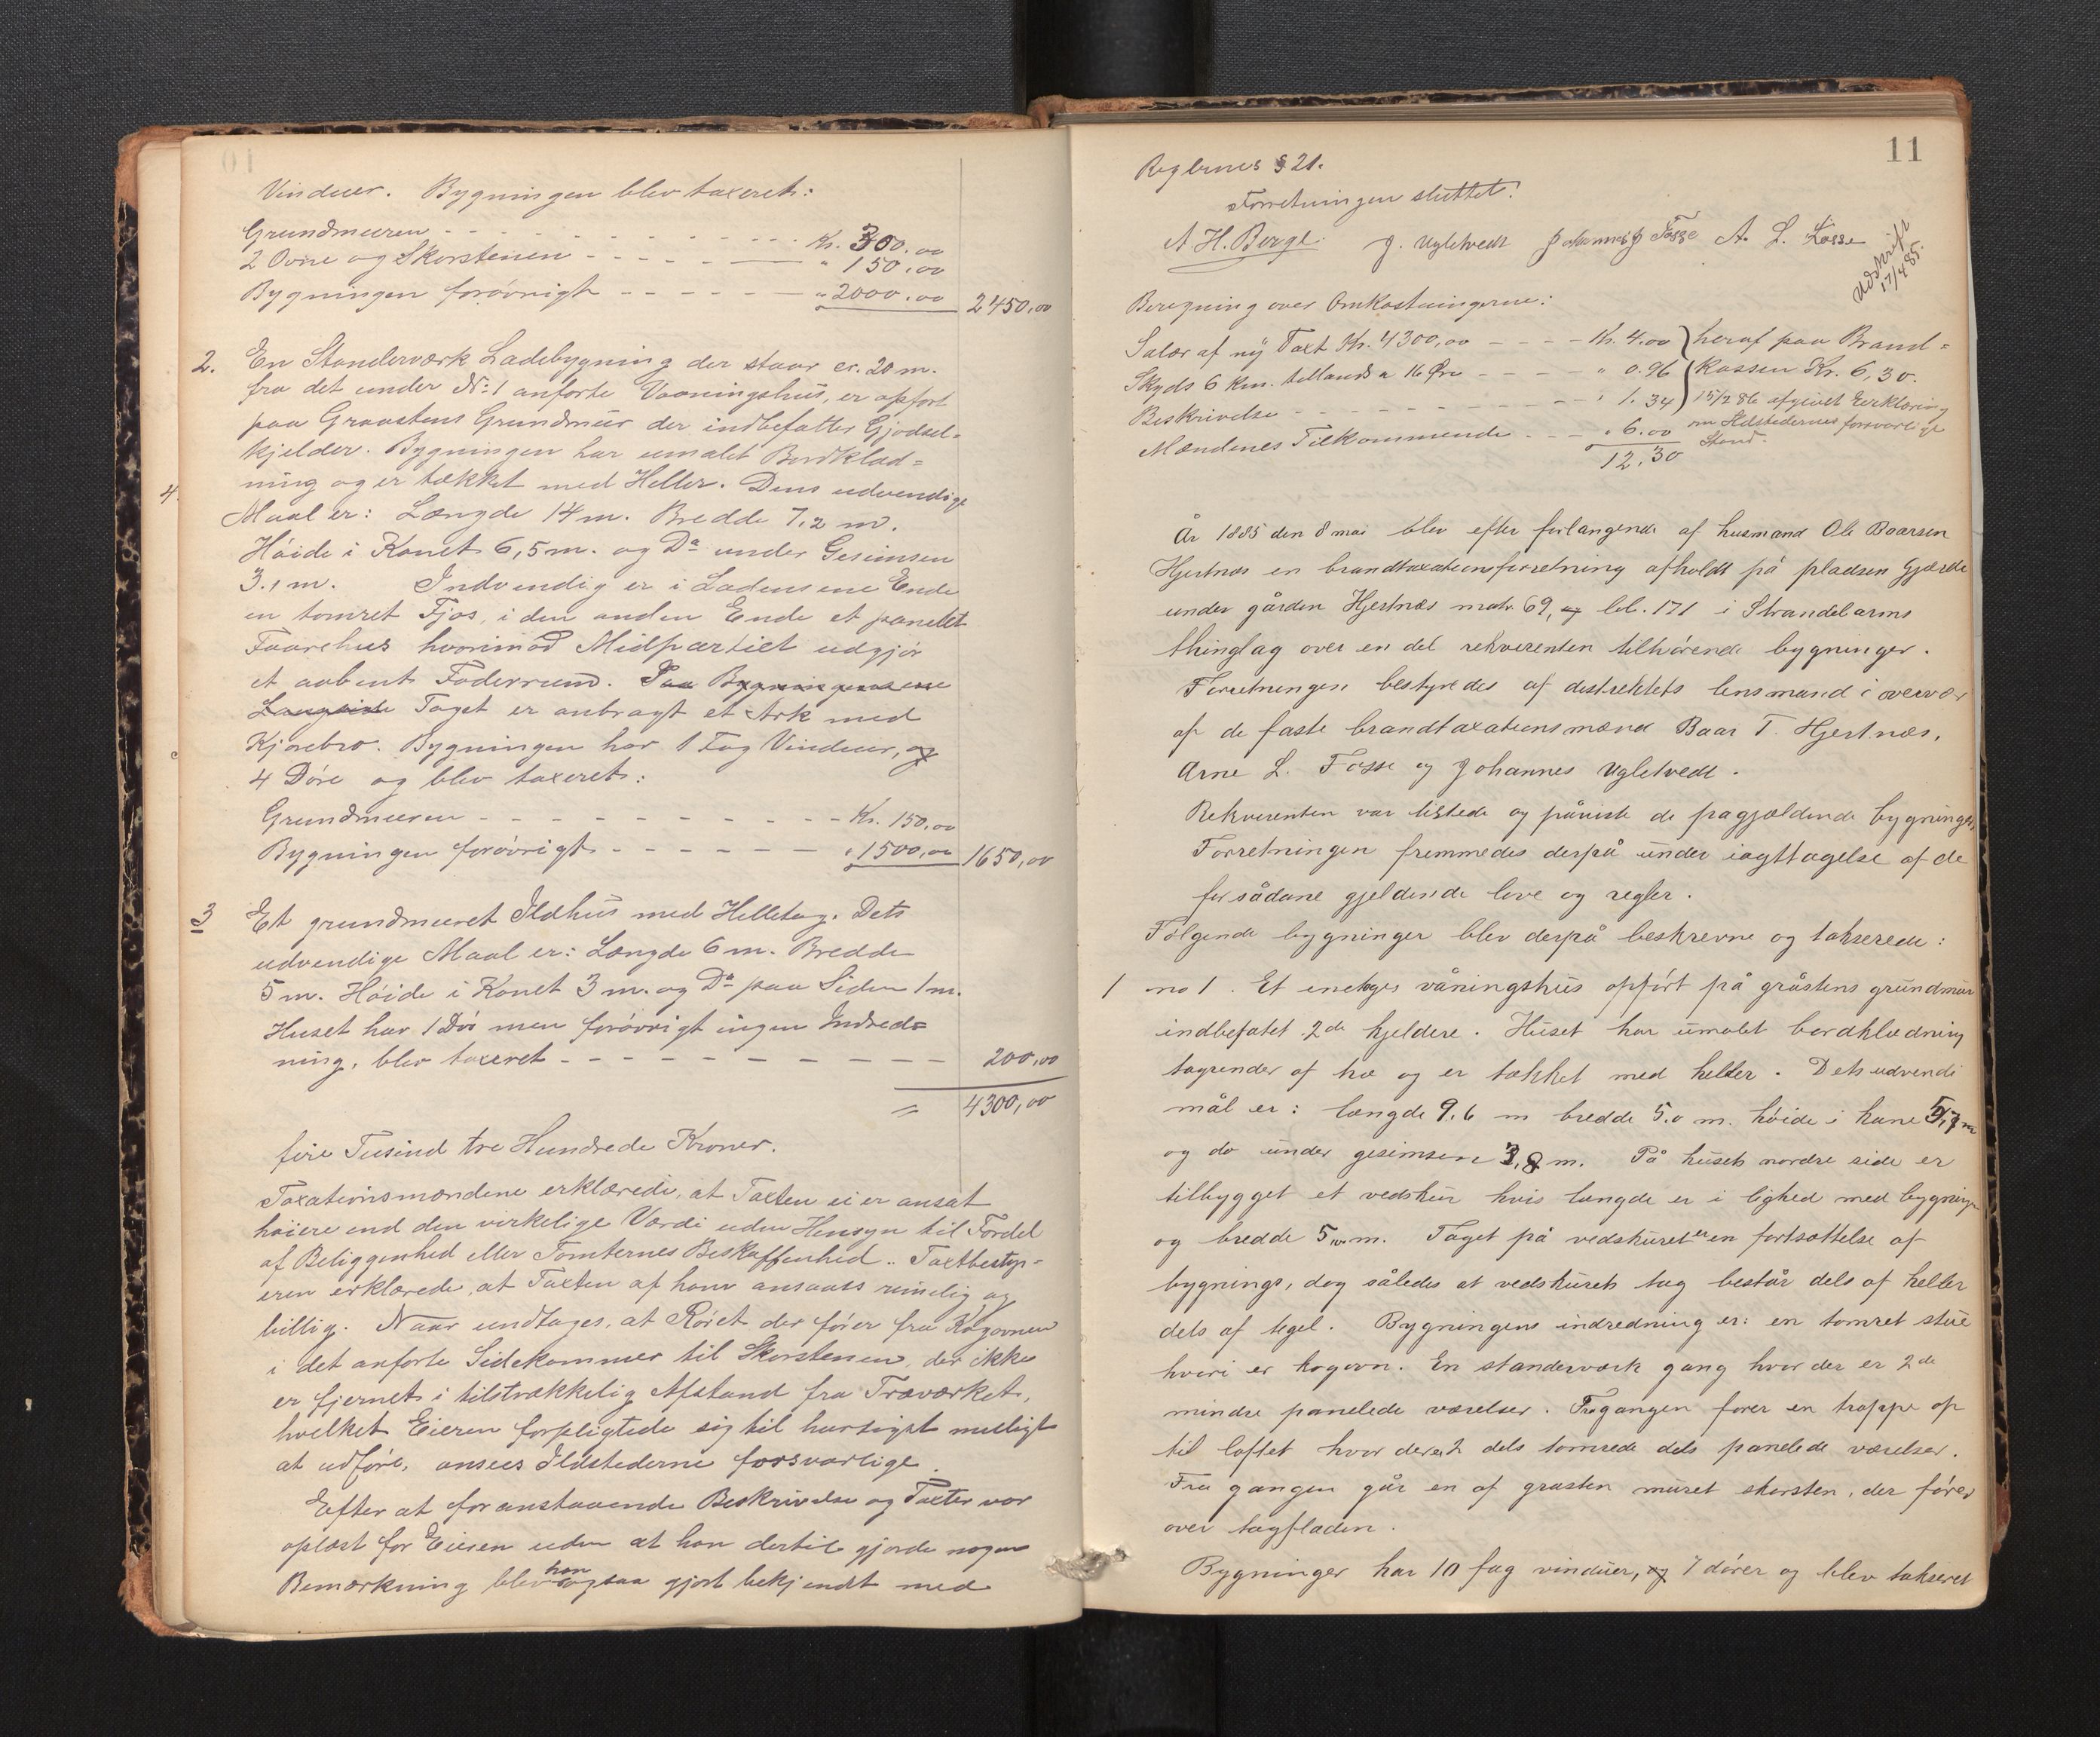 Vinduer. Bygningen blev taxeret:
Grundmuren - - - - - - - - - - - Kr. 300.00
2 Ovne og Skorstenen - - - - - - " 150.00
Bygningen forøvrigt - - - - - - " 2000.00 2450,00
2. En Standerværk Ladebygning der staar ca. 20 m.
fra det under No: 1 anførte Vaaningshus, er opført
paa Graastens Grundmur der indbefatter Gjødsel=
kjelder. Bygningen har umalet Bordklæd=
ning og er tækket med Heller. Dens udvendige
4.
Maal er: Længde 14 m. Bredde 7,2 m.
Høide i Rønet 6,5 m. og Do under Gesimsen
3.1 m. Indvendig er i Ladens ene Ende
en tømret Fjøs, i den anden Ende et panelet
Faarehus hvorimod Midtpartiet udgjør
et aabent Foderrum. Paa Bygningens ene
Langside Taget er anbragt et Ark med
Kjørebro. Bygningen har 1 Fag Vinduer, og
4 Døre og blev taxeret:
Grundmuren - - - - - - - - - - - Kr. 150,00
Bygningen forøvrigt - - - - - - - " 1500,00 1650,00
3 Et grundmuret Ildhus med Helletag. Dets
udvendige Maal er: Længde 6 m. Bredde
5 m. Høide i Rønet 3 m. og Do paa Siden 1 m.
Huset har 1 Dør men forøvrigt ingen Indred=
ning, blev taxeret - - - - - - - - - 200,00
= 4300,00
fire Tusind tre Hundrede Kroner.
Taxationsmændene erklærede, at Taxten ei er ansat
høiere end den virkelige Værdi uden Hensyn til Fordel
af Beliggenhed eller Tomternes Beskaffenhed. Taxtbesty=
eren erklærede, at Taxten af ham ansaaes rimelig og
billig. Naar undtages, at Røret der fører fra Kogovnen
i det anførte Sidekammer til Skorstenen, der ikke
er fjernet i tilstrækkelig Afstand fra Træværket,
hvilket Eieren forpligtede sig til hurtigst muligt
at udføre, ansees Ildstederne forsvarlige.
Efter at foranstaaende Beskrivelse og Taxter var
oplæst for Eieren uden at han dertil gjorde nogen
Bemærkning blev han ogsaa gjort bekjendt med
11
Reglernes § 21.
Forretningen sluttet!
A H. Berge. J. Ugletvedt Johannes J Fosse A. L. Fosse
Udskrift
17/4 85.
Beregning over Omkostningerne:
Salær af ny Taxt Kr. 4300,00 - - - - Kr. 4.00 heraf paa Brand=
Skyds 6 km. tillands a 16 Øre - - - - " 0.96 kassen Kr. 6,30.
Beskrivelse - - - - - - - - - - - " 1.34 15/2 86 afgivet Eerklæring
Mændenes Tilkommende - - - " 6.00 om Ildstedernes forsvarlige
12,30 Stand.
År 1885 den 8 mai blev efter forlangende af husmand Ole Baarsen
Hjertnæs en brandtaxationsforretning afholdt på pladsen Gjærde
under gården Hjertnæs matr. 69, og lb. 171 i Strandebarms
thinglag over en del rekvirenten tilhørende bygninger.
Forretningen bestyredes af distriktets lensmand i overvær
af de faste brandtaxationsmænd Baar T. Hjertnæs,
Arne L. Fosse og Johannes Ugletvedt.
Rekvirenten var tilstede og påviste de pagjældende bygninger.
Forretningen fremmedes derpå under iagttagelse af de
for sådane gjeldende love og regler.
Følgende bygninger blev derpå beskrevne og takserede:
1 no 1. Et enetages våningshus opført på gråstens grundmur
indbefatet 2de kjeldere. Huset har umalet bordklædning
tagrender af træ og er tækket med heller. Dets udvendi
mål er: længde 9,6 m bredde 5.0 m. høide i høne 5,7 m
og do under gesimsen 3,8 m. På husets nordre side er
tilbygget et vedskur hvis længde er i lighed med bygningen
og bredde 5,0 m. Taget på vedskuret er en fortsættelse af
bygnings, dog således at vedskurets tag består dels af heller
dels af tegel. Bygningens indredning er: en tømret stue
hvori er kogovn. En standerværk gang hvor der er 2de
mindre panelede værelser. Fra gangen fører en trappe op
til loftet hvor der er 2 dels tømrede dels panelede værelser.
Fra gangen går en af gråsten muret skorsten, der fører
over tagfladen.
Bygninger har 10 fag vinduer, og 7 dører og blev takseret